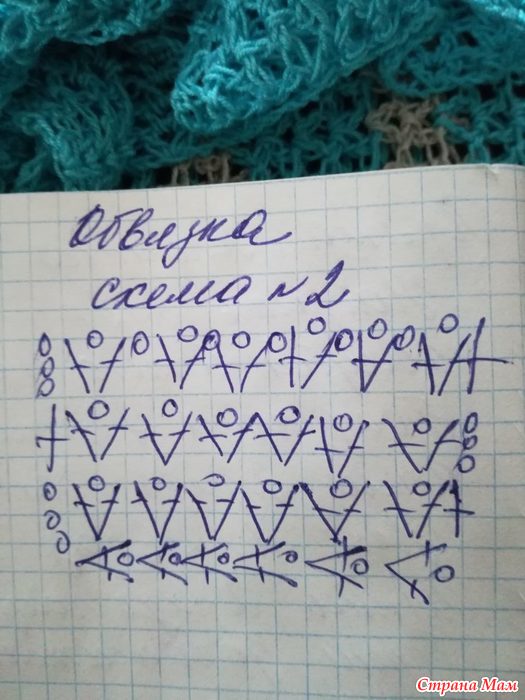 Обвязка
схема n2
Страна Мам